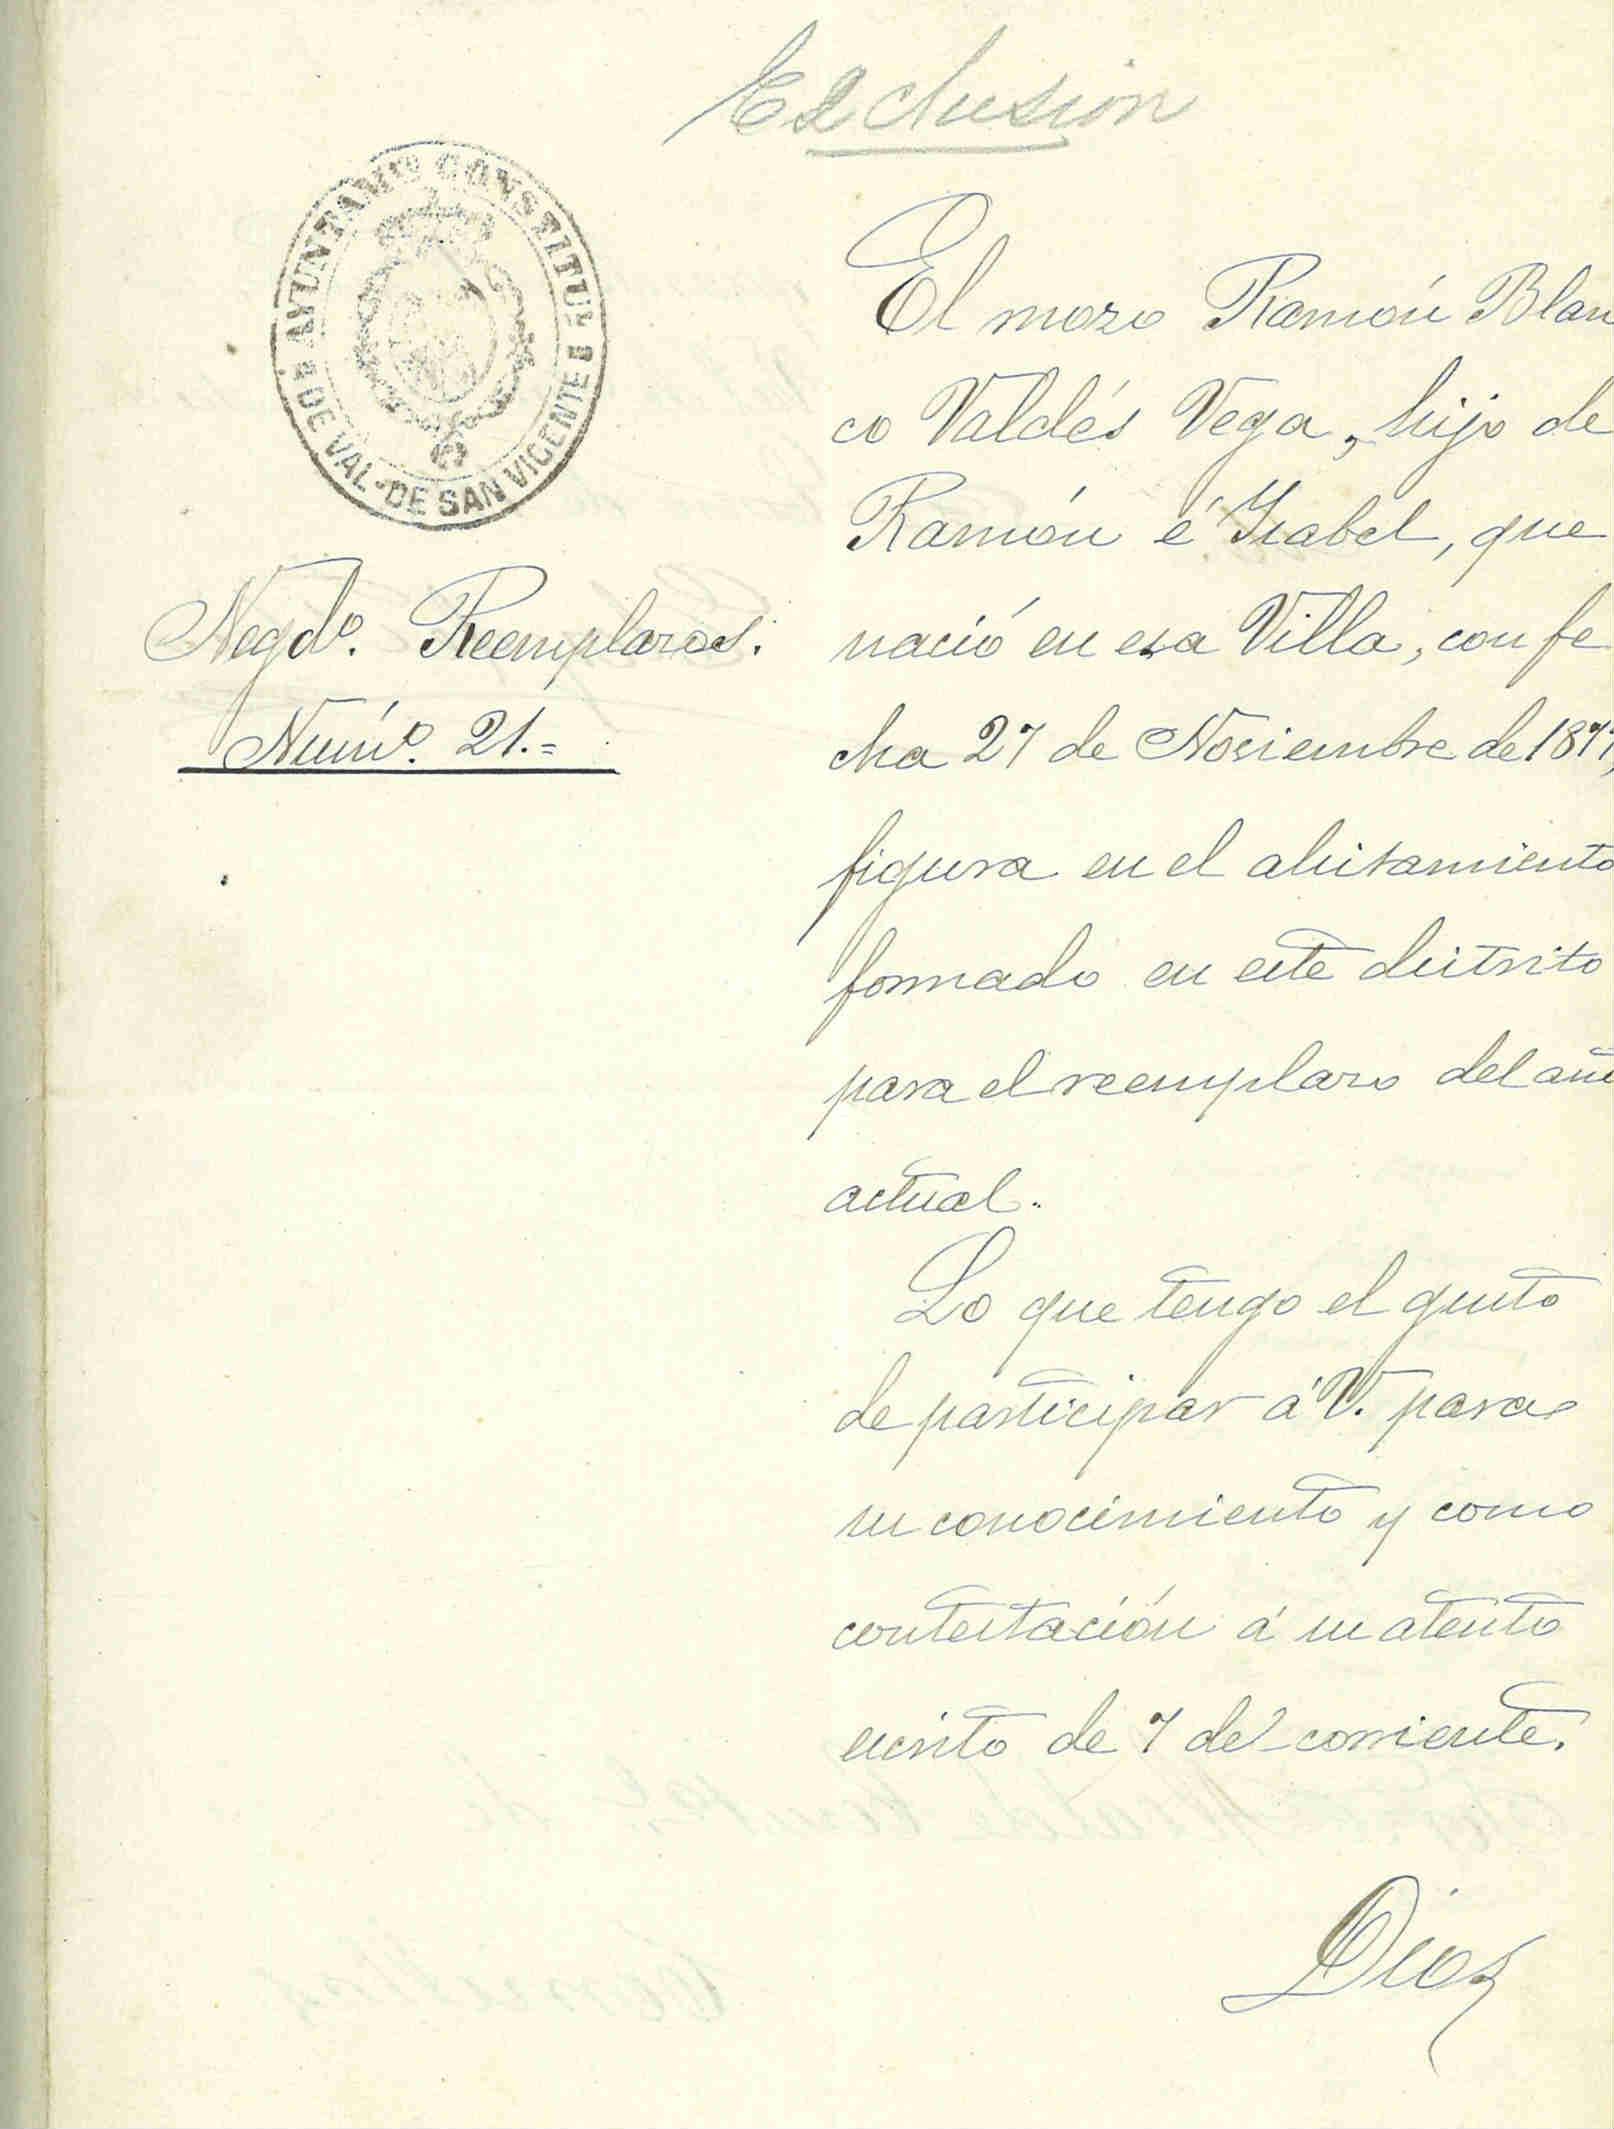 Exclusion
AYUNTAMTO CONSTITUL
DE VAL-DE SAN VICENTE
Negdo. Reemplazos.
Núm.o 21.=
El mozo Ramón Blan
co Valdés Vega, hijo de
Ramón é Isabel, que
nació en esa Villa, con fe
cha 27 de Noviembre de 1877,
figura en el alistamiento
formado en este distrito
para el reemplazo del año
actual.
Lo que tengo el gusto
de participar á V. para
su conocimiento y como
contestación á su atento
escrito de 7 del corriente.
Dios